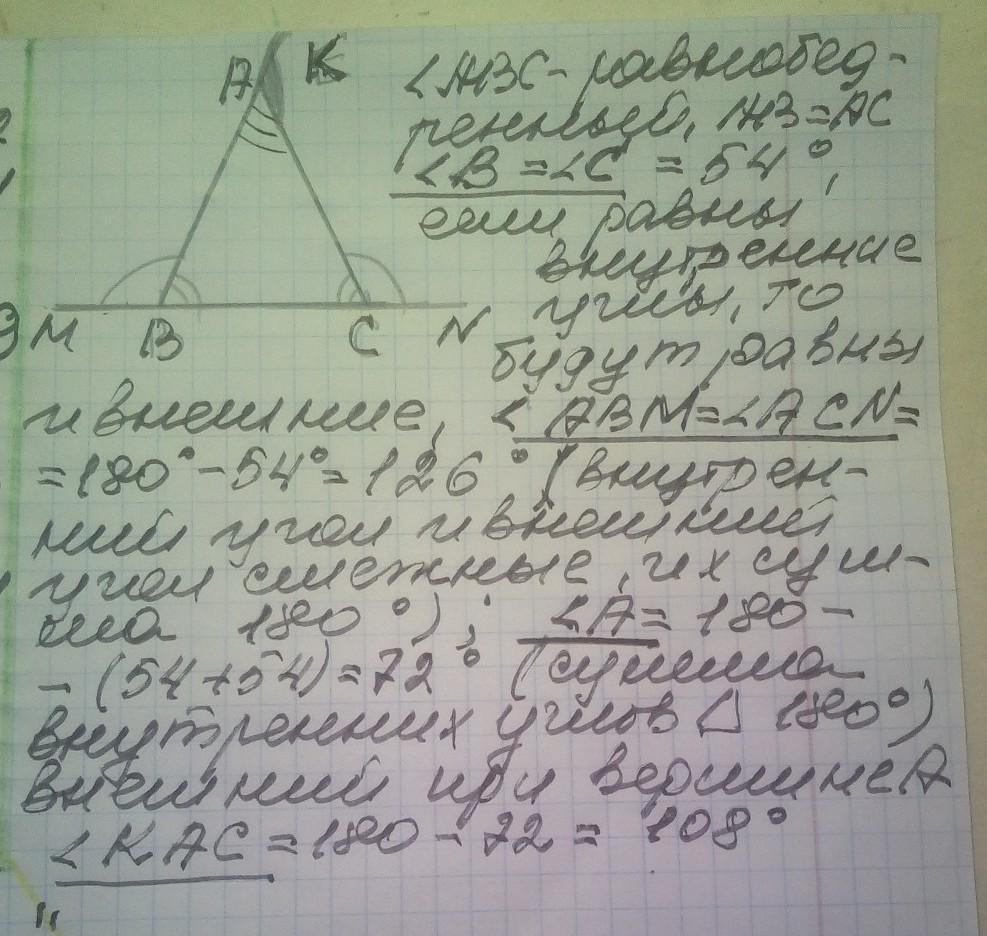 A K
M B C N
∠ABC - равнобед-
ренный, AB=AC
∠B=∠C = 54°,
если равны
внутренние
углы, то
будут равны
и внешние, ∠ABM=∠ACN=
=180°-54°=126° (внутрен-
ний угол и внешний
угол смежные, их сум-
ма 180°); ∠A=180-
-(54+54)=72° (сумма
внутренних углов △ 180°)
внешний при вершине A
∠KAC=180-72=108°